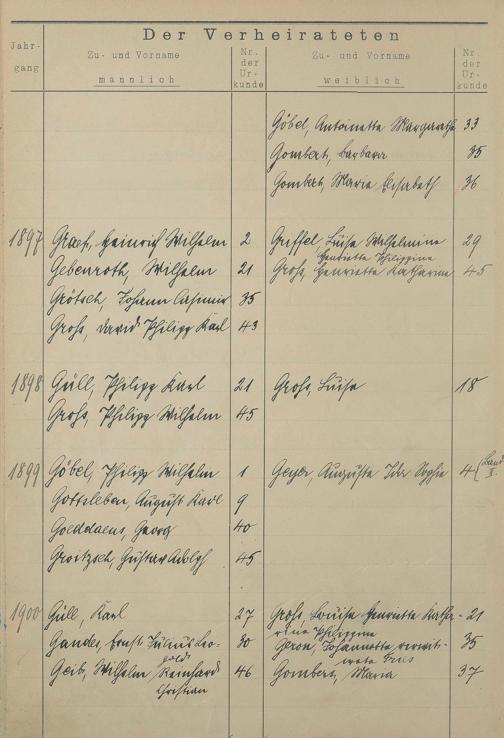 Der Verheirateten
Jahr-
gang
Zu- und Vorname
männlich
Nr.
der
Ur-
kunde
Zu- und Vorname
weiblich
Nr.
der
Ur-
kunde
Göbel, Antoinette Margarethe 33
Gombert, Barbara 35
Gombert, Marie Elisabeth 36
1897 Graef, Heinrich Wilhelm 2 Luise Wilhelmine 29
Gebenroth, Wilhelm 21 Groß, Henriette Katharine 45
Henriette Philippine
Grötsch, Johann Casimir 35
Groß, David Philipp Karl 43
1898 Güll, Philipp Karl 21 Groß, Luise 18
Groß, Philipp Wilhelm 45
1899 Göbel, Philipp Wilhelm 1 Geyer, Auguste Ida Sophie 4 (Band
II.
Gottsleben, August Karl 9
Goeddaeus, Georg 40
Groitzsch, Gustav Adolf 45
1900 Güll, Karl 27 Groß, Louise Henriette Katha- 21
rine Philippine
Gander, Ernst Julius Leo- 30 Geron, Johannette verwit- 35
pold
wete
Geib, Wilhelm Reinhard 46 Gombert, Maria 37
Christian